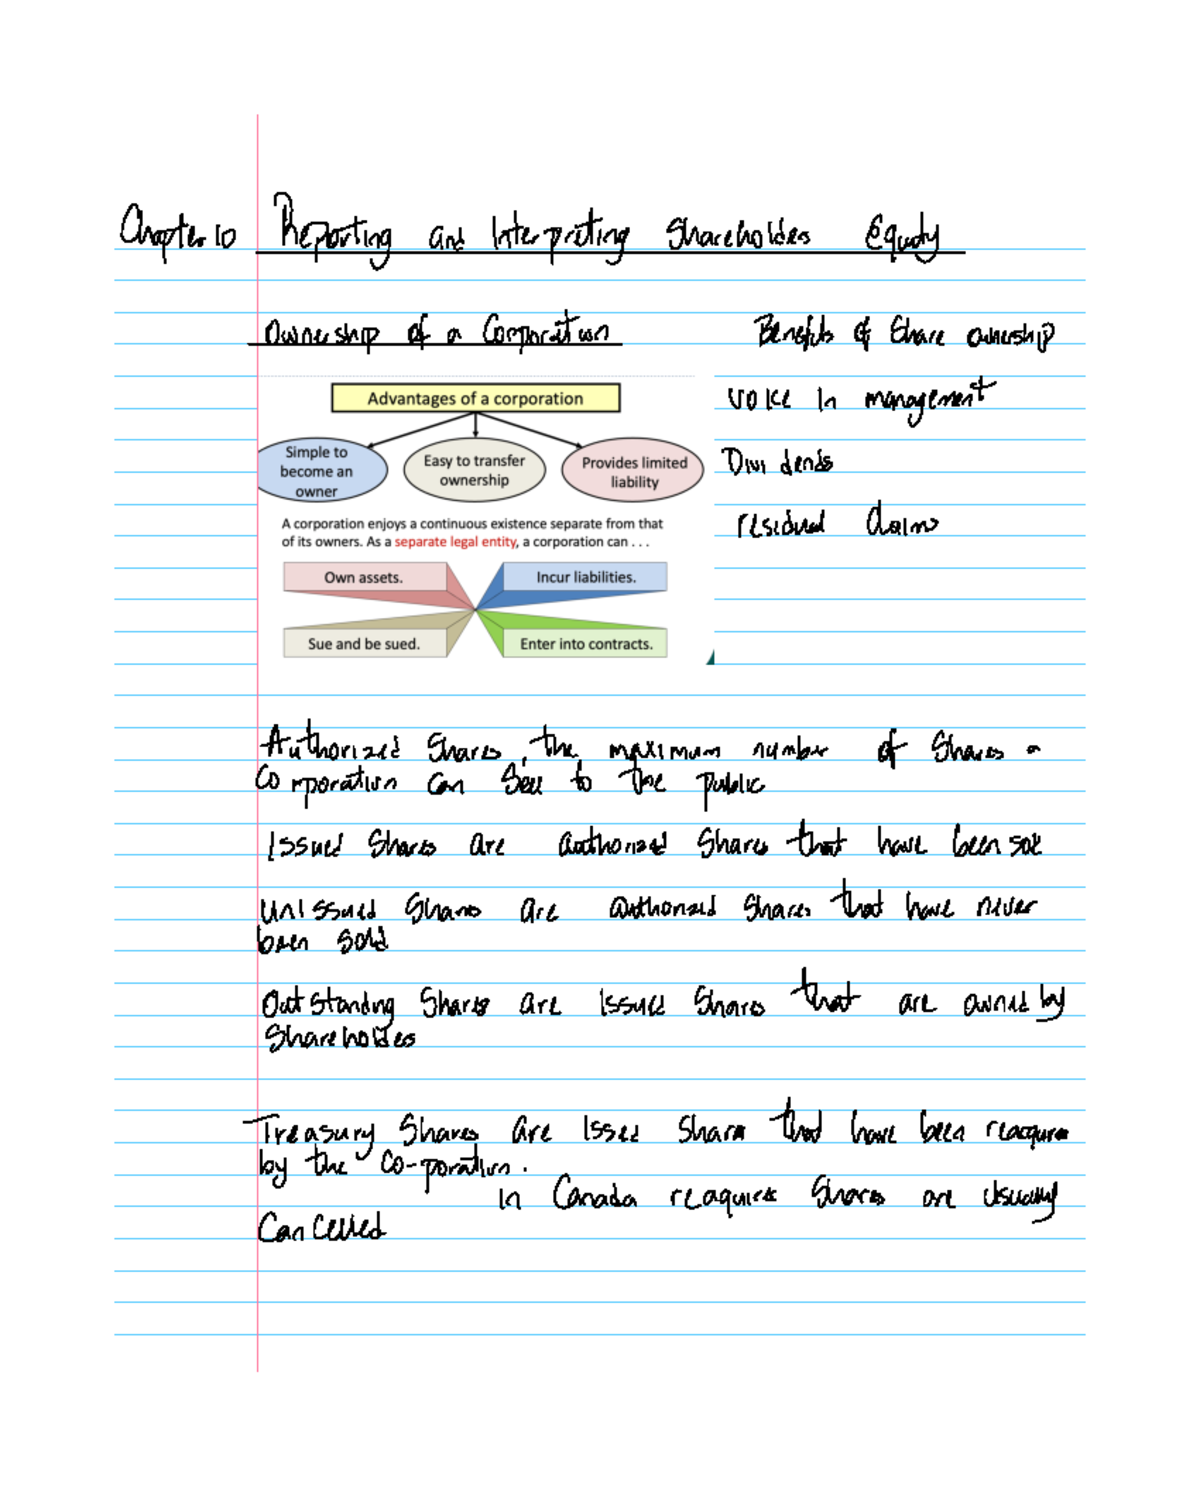 Chapter 10 Reporting and Interpreting Shareholdes Equity
Ownership of a Corporation
Benefits of Share ownership
Advantages of a corporation
Simple to
become an
owner
Easy to transfer
ownership
Provides limited
liability
voice in management
Dividends
residual claims
A corporation enjoys a continuous existence separate from that
of its owners. As a separate legal entity, a corporation can . . .
Own assets.
Incur liabilities.
Sue and be sued.
Enter into contracts.
Authorized Shares, the maximum number of Shares a
Corporation can Sell to the public
Issued Shares are authorized Shares that have been
Unissued Shares are authorized Shares that have never
been sold
Outstanding Shares are issued Shares that are owned by
Shareholdes
Treasury Shares are Issed Share that have been
by the Co-poration.
in Canada Shares are usually
Cancelled